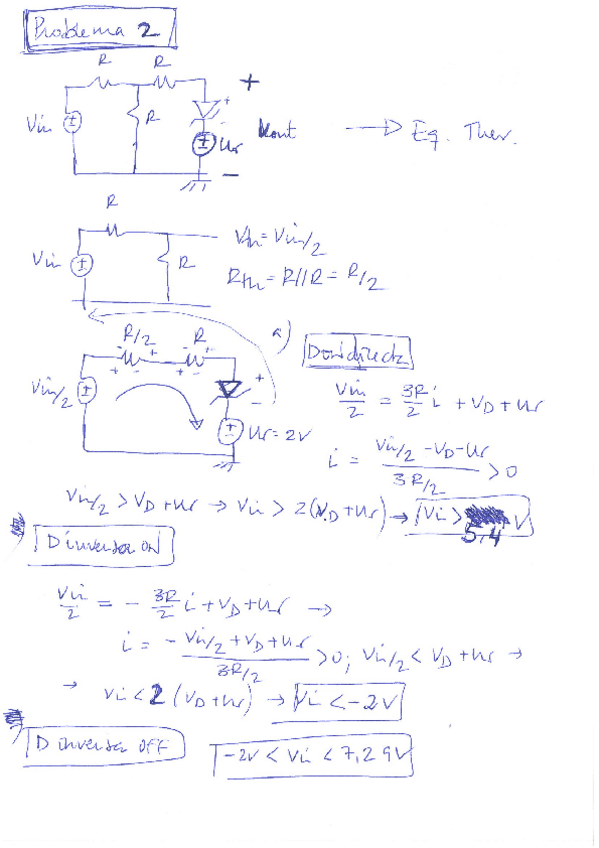 Problema 2
R R +
Vin R Ur Vout → Eq. Thev.
−
R
Vin R Vth = Vin/2
Rth = R//R = R/2
R/2 R a) D on directa
Vin/2 Ur = 2V
Vin/2 = 3R/2 i + VD + Ur
i = (Vin/2 - VD - Ur)/(3R/2) > 0
Vin/2 > VD + Ur → Vin > 2(VD + Ur) → Vi > 5,4 V
D inversa ON
Vin/2 = - 3R/2 i + VD + Ur →
i = (- Vin/2 + VD + Ur)/(3R/2) > 0; Vin/2 < VD + Ur →
→ Vi < 2 (VD + Ur) → Vi < -2V
D inversa OFF -2V < Vi < 7,29V